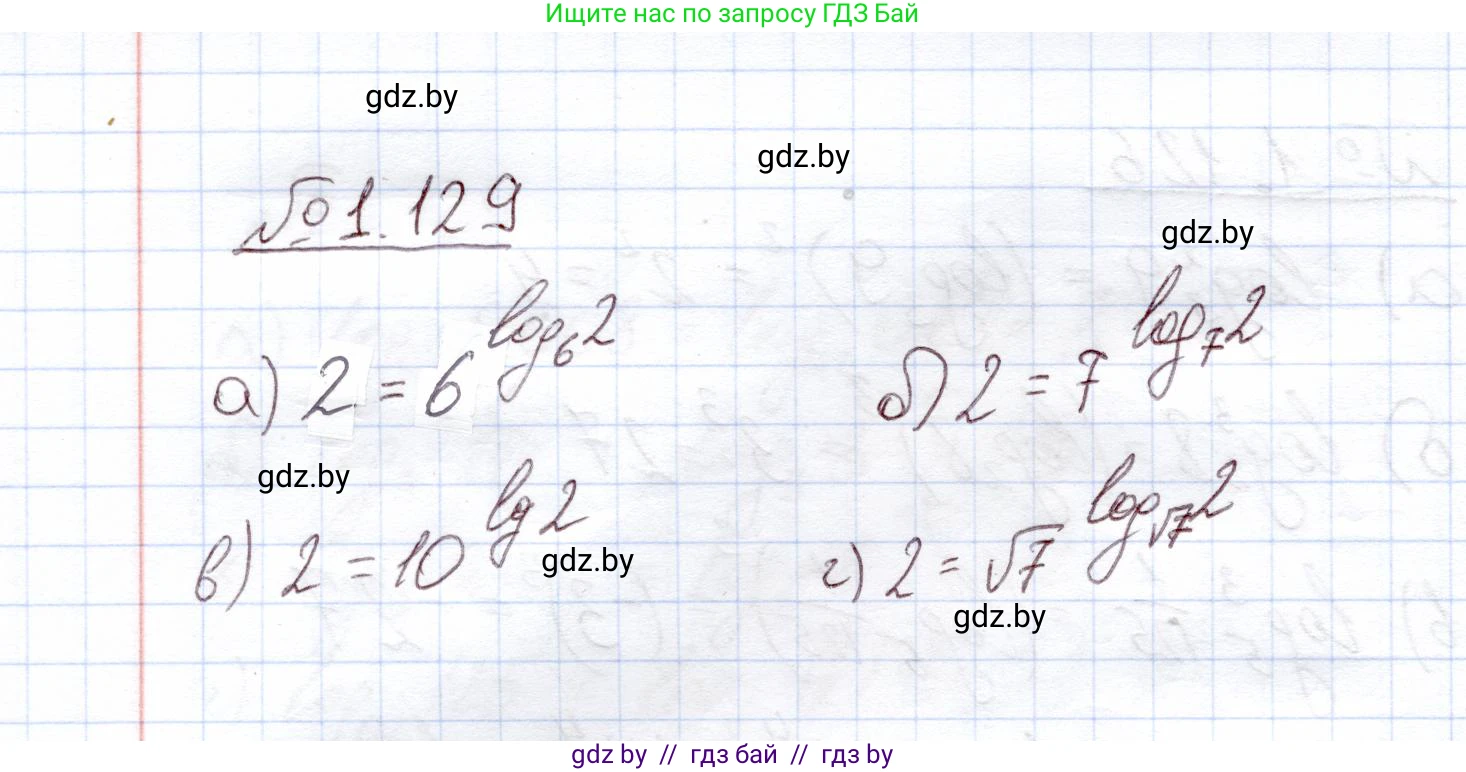 Ищите нас по запросу ГДЗ Бай
gdz.by
gdz.by
№ 1.129
gdz.by
а) 2 = 6^{log_6 2}
б) 2 = 7^{log_7 2}
gdz.by
в) 2 = 10^{lg 2}
gdz.by
г) 2 = √7^{log_{√7} 2}
gdz.by
gdz by // гдз бай // гдз by